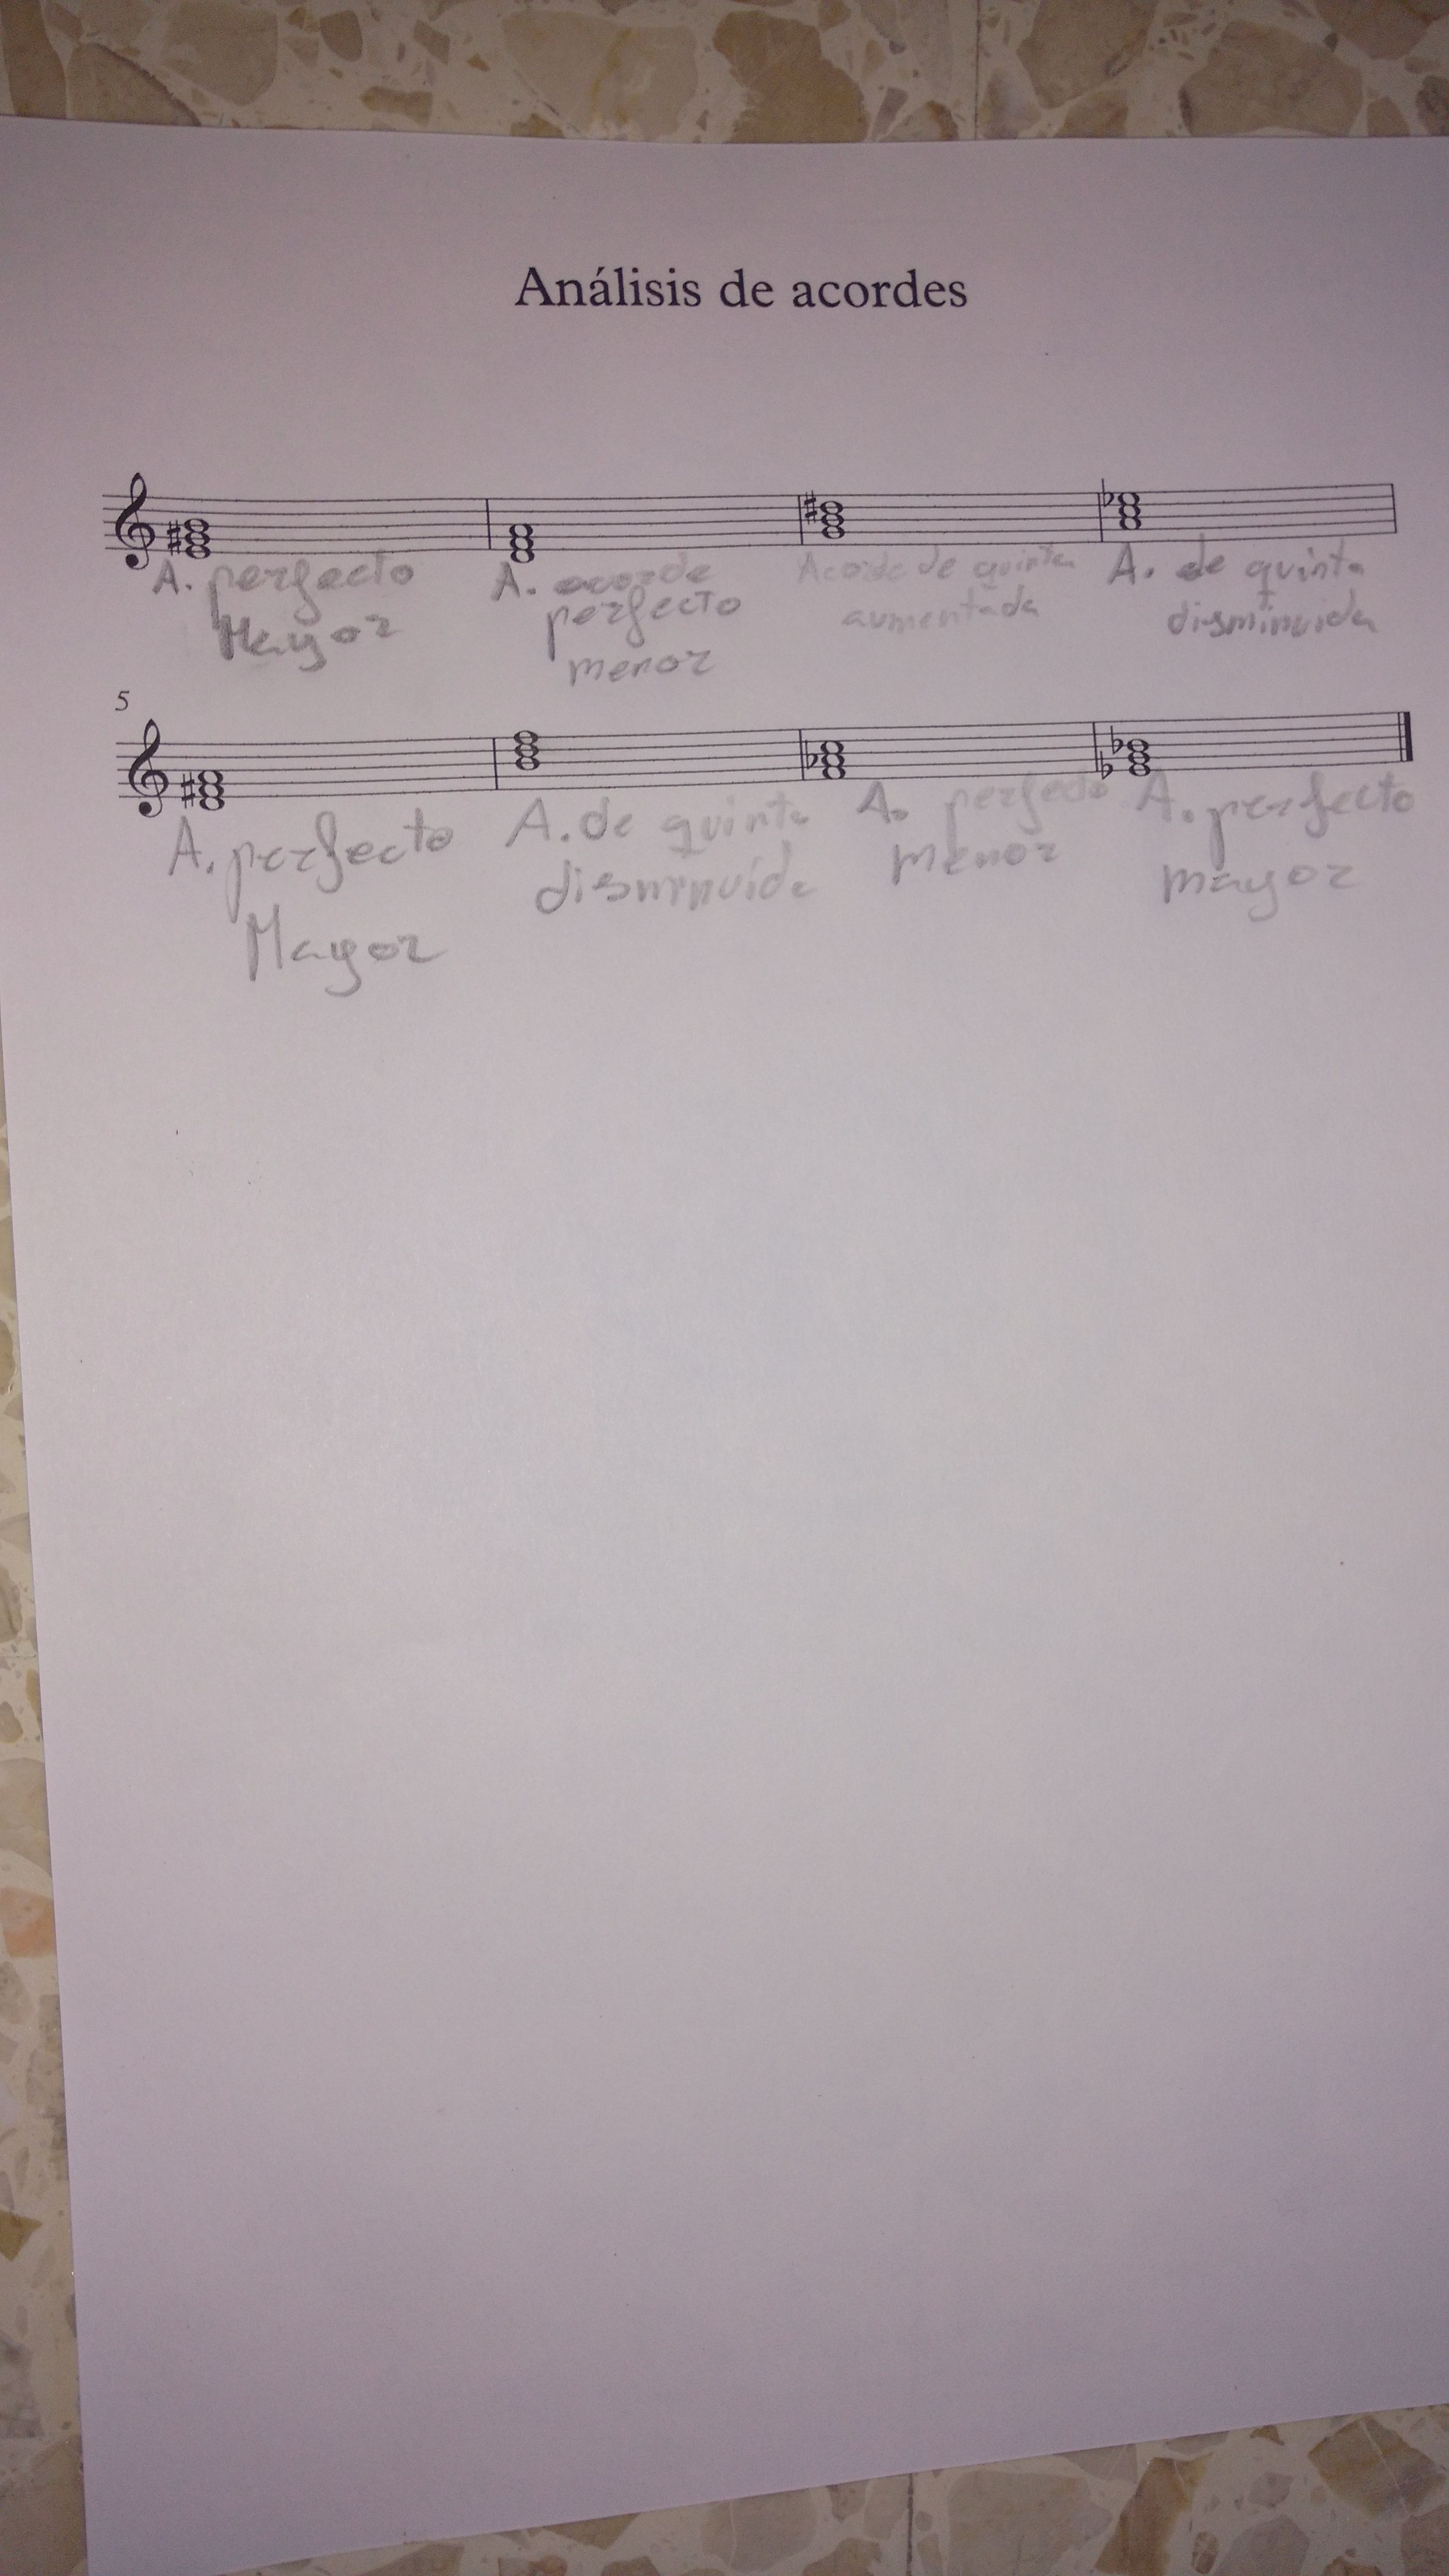 Análisis de acordes
A. perfecto
Mayor
A. acorde
perfecto
menor
Acorde de quinta
aumentada
A. de quinta
disminuida
5
A. perfecto
Mayor
A. de quinta
disminuída
A. perfecto
menor
A. perfecto
mayor